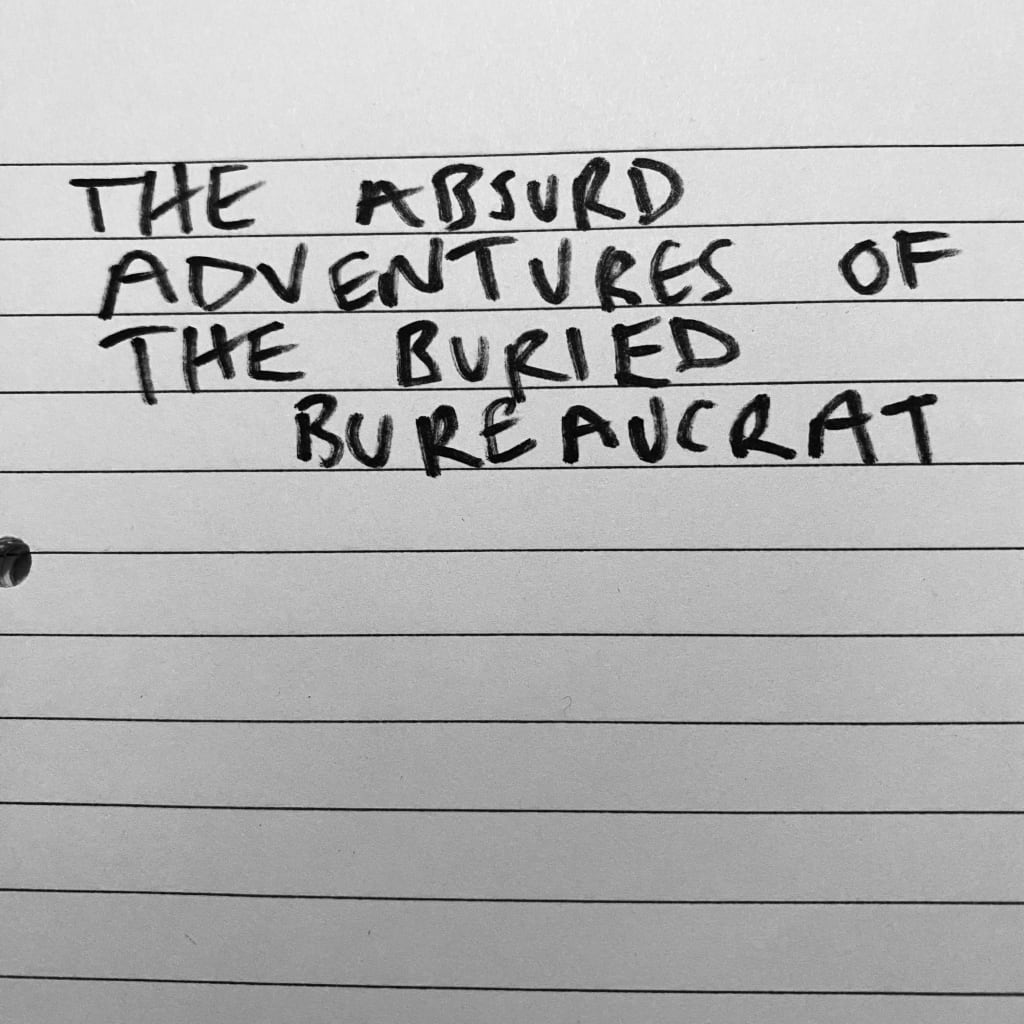 THE ABSURD
ADVENTURES OF
THE BURIED
BUREAUCRAT